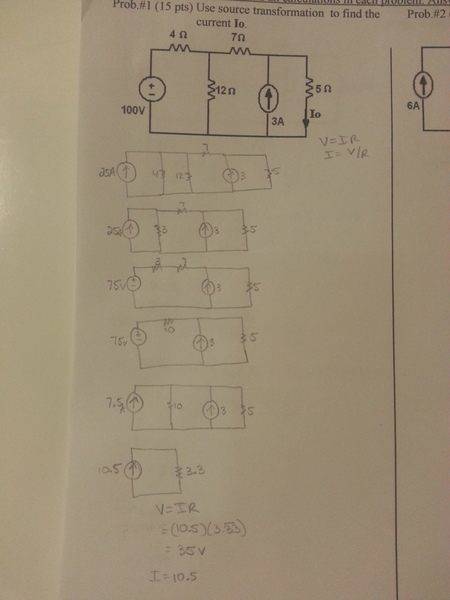 Prob.#1 (15 pts) Use source transformation to find the
current Io.
Prob.#2
4 Ω 7Ω
12 Ω 5 Ω
100V 3A Io
6A
V=IR
I= V/R
7
25A 4 12 3 5
7
25A 3 3 5
3 7
75V 3 5
10
75V 3 5
7.5A 10 3 5
10.5 3.3
V=IR
=(10.5)(3.33)
= 35V
I=10.5